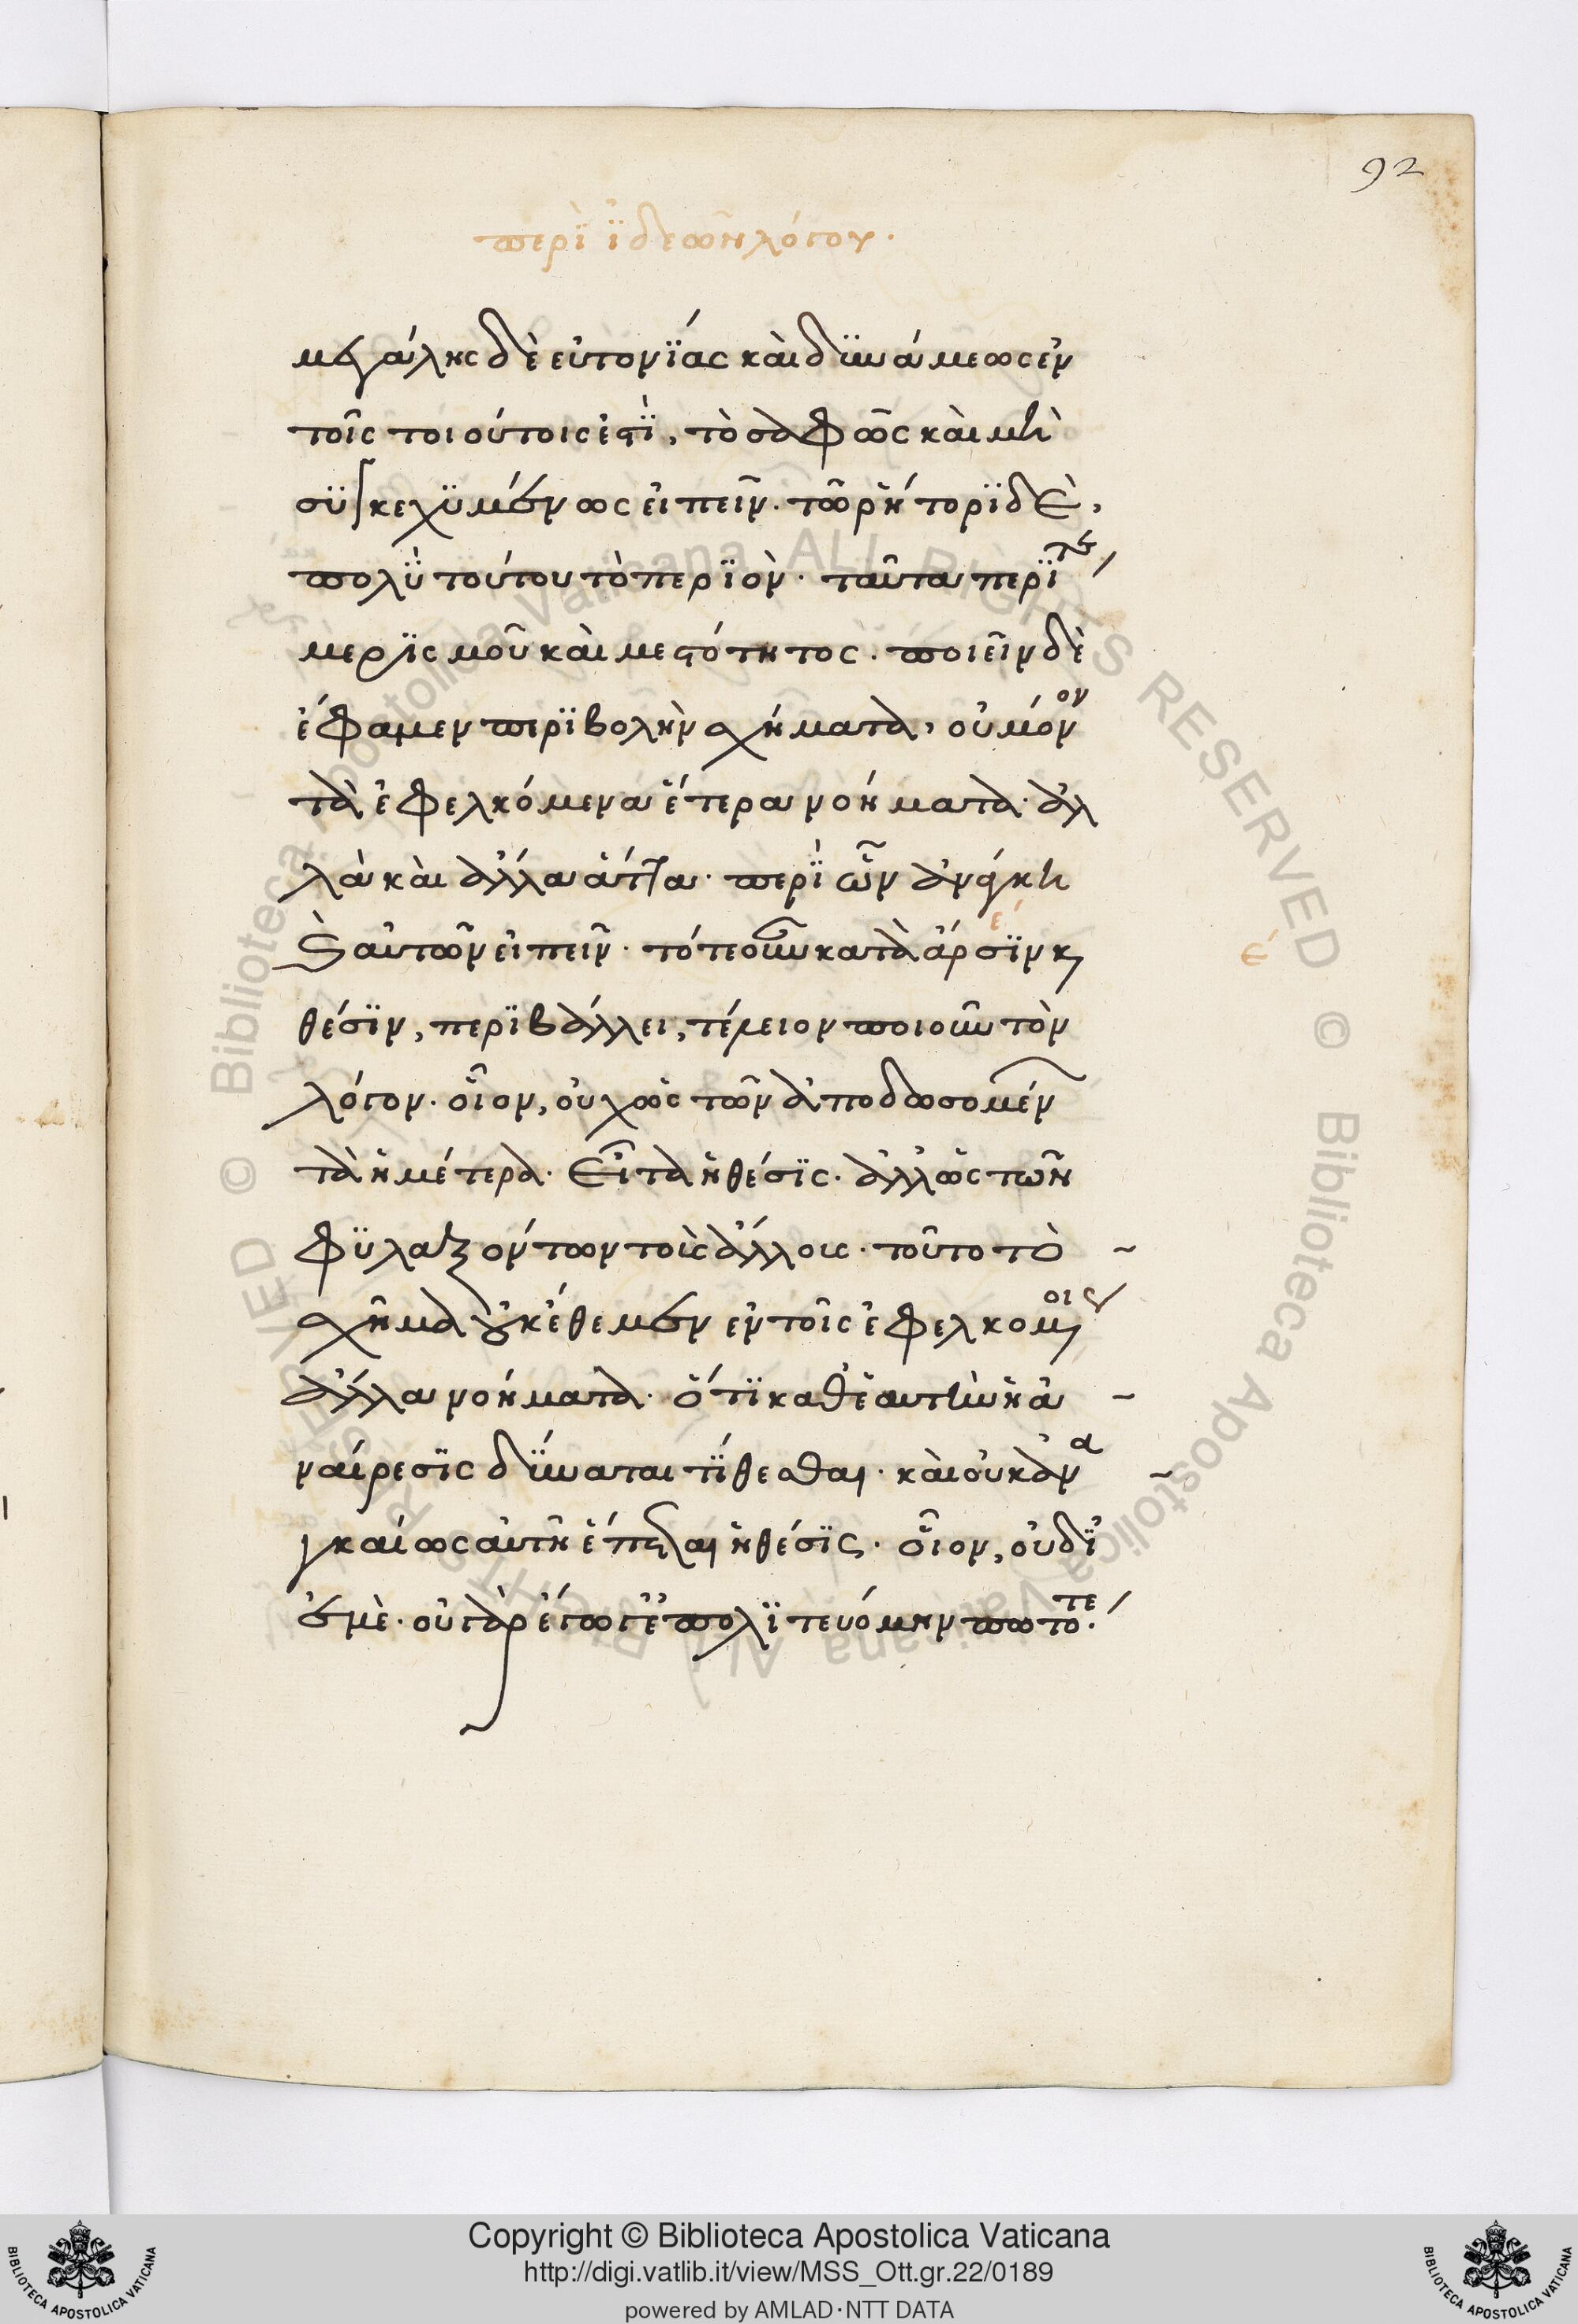 92
περὶ ἰδεῶν λόγου.
μεγάλης δὲ εὐτονΐας καὶ δϋνάμεως ἐν
τοῖς τοιούτοις ἐστὶ, τὸ σαφῶς καὶ μὴ
συγκεχϋμένως εἰπεῖν. τῶ ῥήτορϊ δὲ,
πολὺ τούτου τὸ περϊὸν. ταῦτα περϊ τε
μερϊσμοῦ καὶ μεστότητος. ποιεῖν δὲ
ἔφαμεν περϊβολὴν σχήματα, οὐ μόνον
τὰ ἐφελκόμενα ἕτερα νοήματα. ἀλ
λὰ καὶ ἄλλα ἄττα. περὶ ὧν ἀνάγκη
δι αὐτῶν εἰπεῖν. τό τε οὖν κατὰ ἄρσϊν κ
ε
έ
θέσϊν, περϊβάλλει, τέμειον ποιοῦν τὸν
λόγον. οἷον, οὐχ ὡς τῶν ἀποδωσομέν
τὰ ἡμέτερα. Εἶτα ἡ θέσϊς. ἀλλ ὡς τῶν
φϋλαξόντων τοῖς ἄλλοις. τοῦτο τὸ
σχῆμα οὐκ ἐθεμεν ἐν τοῖς ἐφελκομένοις
ἄλλα νοήματα. ὅτϊ καθ ἑαυτὴν ἡ ἀ
ναίρεσϊς δΰναται τΐθεσθαι. καὶ οὐκ ἀνα
γκαίως αὐτῆ ἕπεται ἡ θέσϊς. οἷον, οὐδϊ
ἐμὲ. οὐ γὰρ ἔγωγε ἐπολϊτευόμην πωτοτε.
Copyright © Biblioteca Apostolica Vaticana
http://digi.vatlib.it/view/MSS_Ott.gr.22/0189
powered by AMLAD·NTT DATA
BIBLIOTECA APOSTOLICA VATICANA
BIBLIOTECA APOSTOLICA VATICANA
© Biblioteca Apostolica Vaticana ALL RIGHTS RESERVED
© Biblioteca Apostolica Vaticana ALL RIGHTS RESERVED